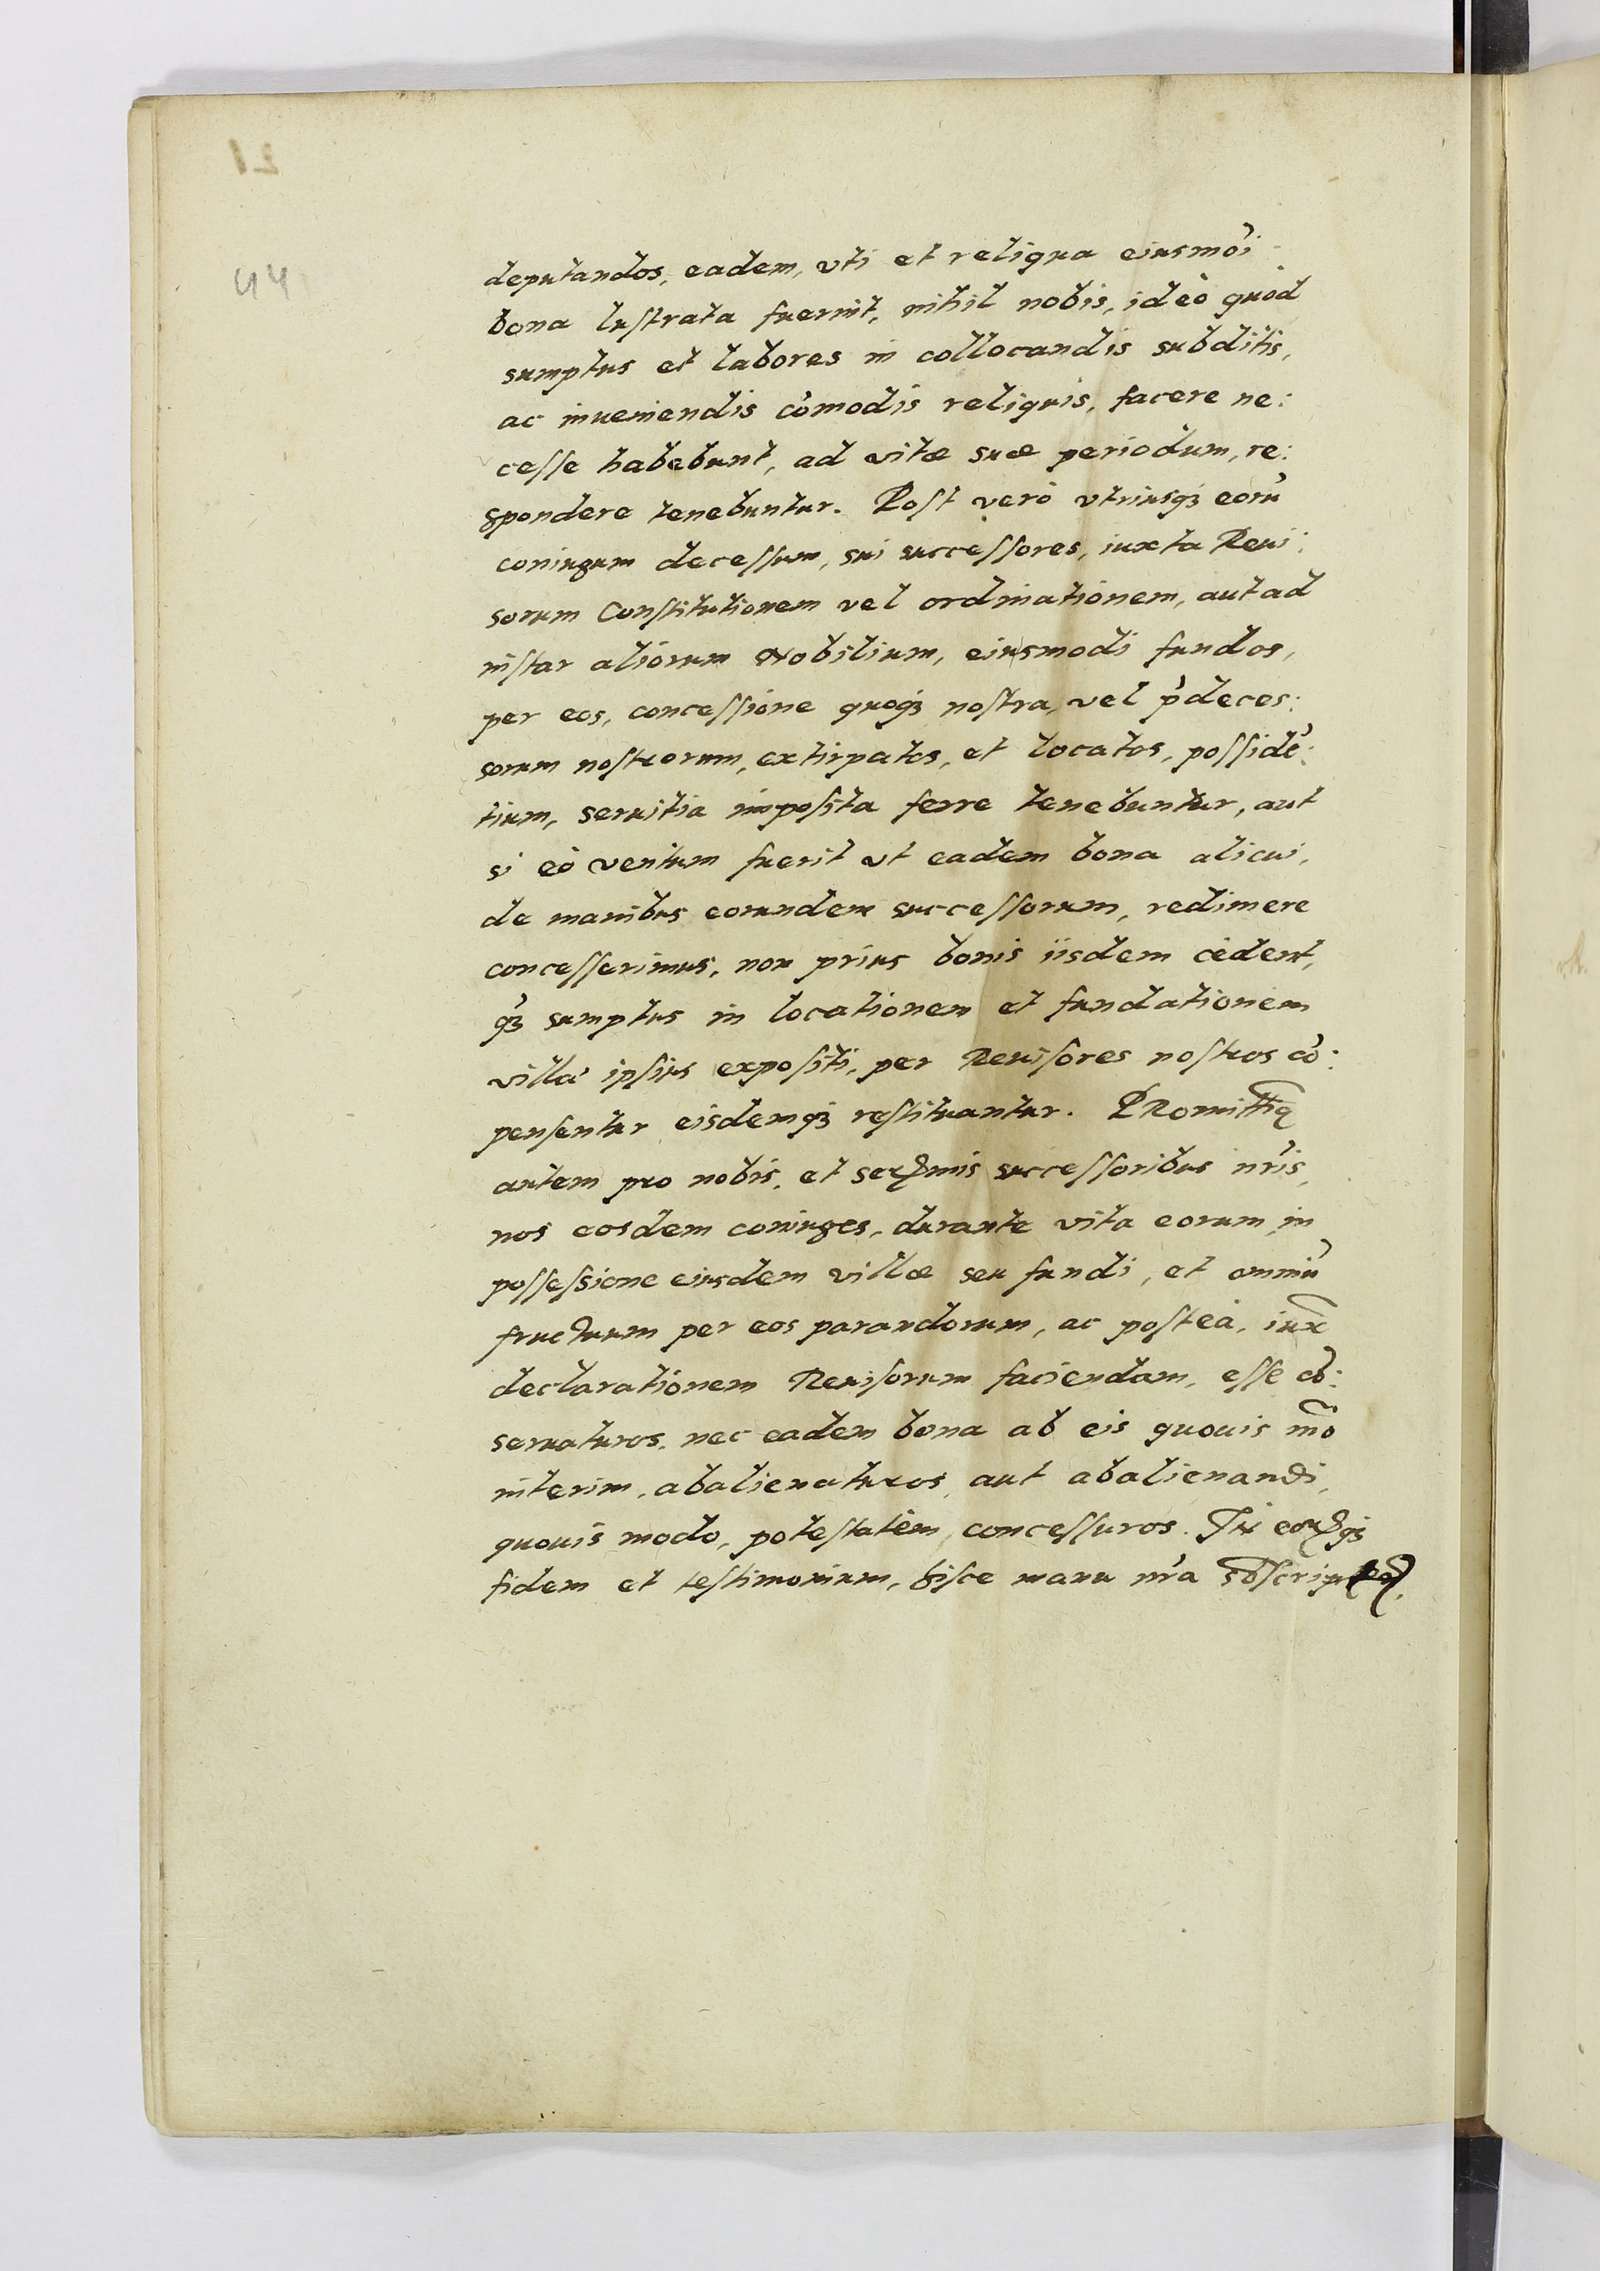 44
deputandos, eadem, vti et reliqua eiusmoi
bona lustrata fuerint, nihil nobis, ideò quòd
sumptus et labores in collocandis subditis,
ac inueniendis comodis reliquis, facere ne:
cesse habebunt, ad vitæ suæ periodum, re:
spondere tenebuntur. Post verò vtriusq; eorū
coniugum decessum, sui successores, iuxta Reui:
sorum Constitutionem vel ordinationem, aut ad
instar aliorum Nobilium, eiusmodi fundos,
per eos, concessione quoq; nostra, vel p̄deces:
sorum nostrorum, extirpatos, et locatos, possidē:
tium, seruitia imposita ferre tenebuntur, aut
si eò ventum fuerit vt eadem bona alicui,
de manibus eorundem successorum, redimere
concesserimus, non prius bonis iisdem cedent,
q; sumptus in locationem et fundationem
villæ ipsius expositi, per Reuisores nostros cō:
pensentur eisdemq; restituantur. PRomittiq
autem pro nobis, et serꝫmis successoribus nr̄is,
nos eosdem coniuges, durante vita eorum, in
possessione eiusdem villæ seu fundi, et omniū
fructuum per eos parandorum, ac posteà, iux
declarationem Reuisorum faciendam, esse cō:
seruaturos, nec eadem bona ab eis quouis mō
interim, abalienaturos, aut abalienandi,
quouis modo, potestatem, concessuros. In eorꝝ q;
fidem et testimonium, hisce manu nr̄a